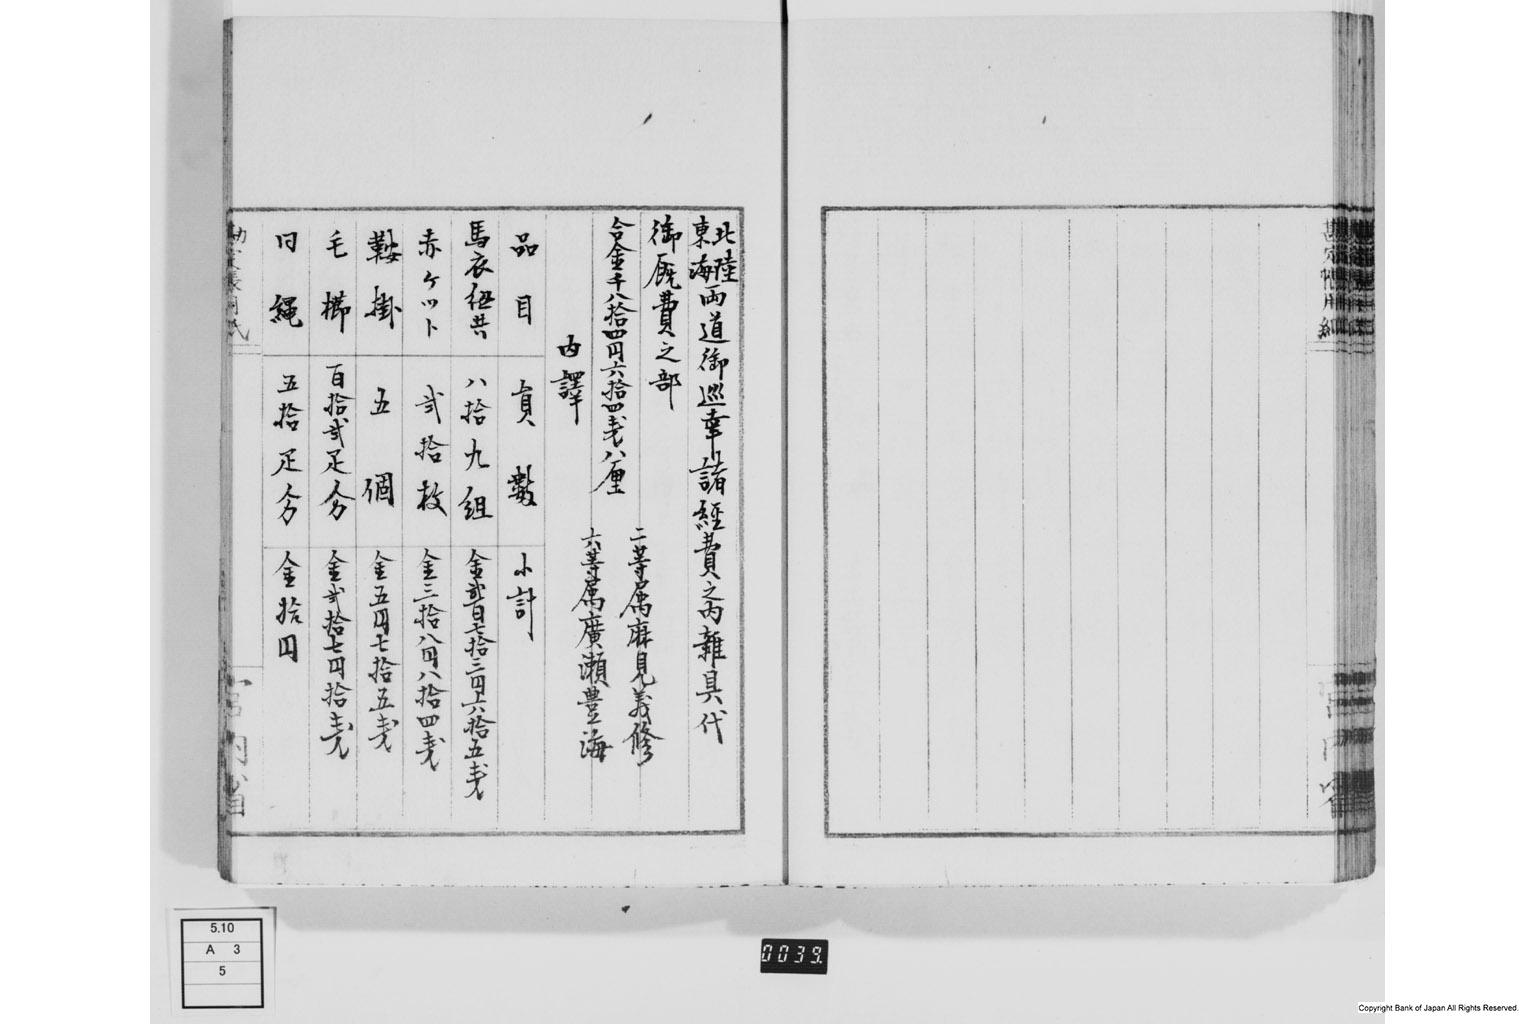 北陸
東海 両道御巡幸諸経費之内雑具代
御厩費之部
合金千八拾四円六拾四銭八厘
二等属麻見義修
六等属廣瀬豊海
内譯
品目 員數 小計
馬衣紐共 八拾九組 金貳百七拾三円六拾五銭
赤ケット 弐拾枚 金三拾八円八拾四銭
鞍掛 五個 金五円七拾五銭
毛櫛 百拾弐疋分 金弐拾七円拾銭
口縄 五拾疋分 金拾円
宮内省
5.10
A 3
5
0039.
Copyright Bank of Japan All Rights Reserved.